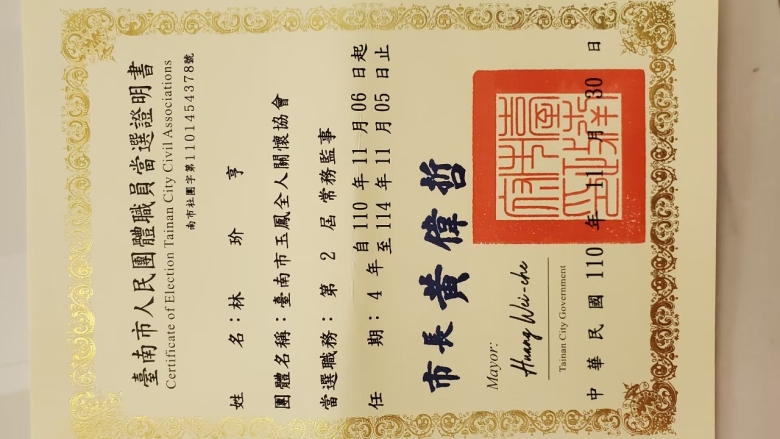 臺南市人民團體職員當選證明書
Certificate of Election Tainan City Civil Associations
南市社團字第1101454378號
姓名：林玠亨
團體名稱：臺南市玉鳳全人關懷協會
當選職務：第 2 屆常務監事
任期：4 年 自 110 年 11 月 06 日起
至 114 年 11 月 05 日止
市長黃偉哲
Mayor:
Huang Wei-che
Tainan City Government
中華民國 110 年 11 月 30 日